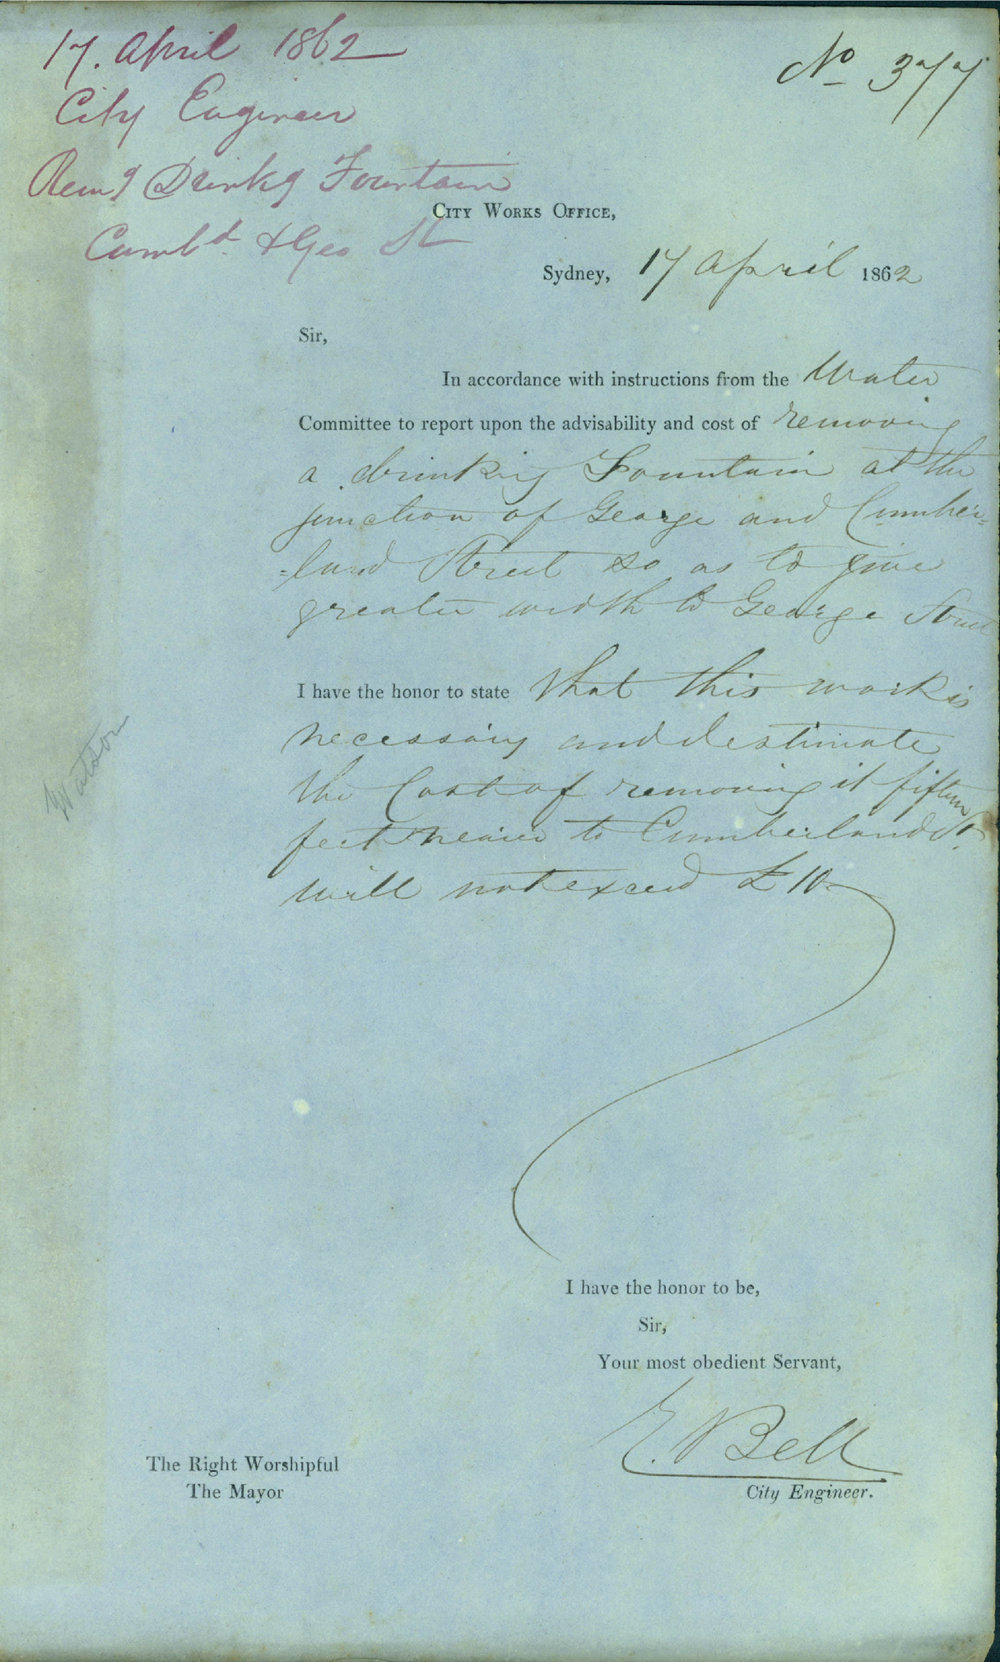 17. April 1862
City Engineer
Remg Drinkg Fountain
Cumbd. & Geo St
No 377
City Works Office,
Sydney, 17 April 1862
Sir,
In accordance with instructions from the Water
Committee to report upon the advisability and cost of removing
a drinking Fountain at the
junction of George and Cumber-
-land Street so as to give
greater width to George Street
I have the honor to state that this work is
necessary and I estimate
the Cost of removing it fifteen
feet nearer to Cumberland St.
will not exceed £10
Watson
I have the honor to be,
Sir,
Your most obedient Servant,
E. Bell
City Engineer.
The Right Worshipful
The Mayor